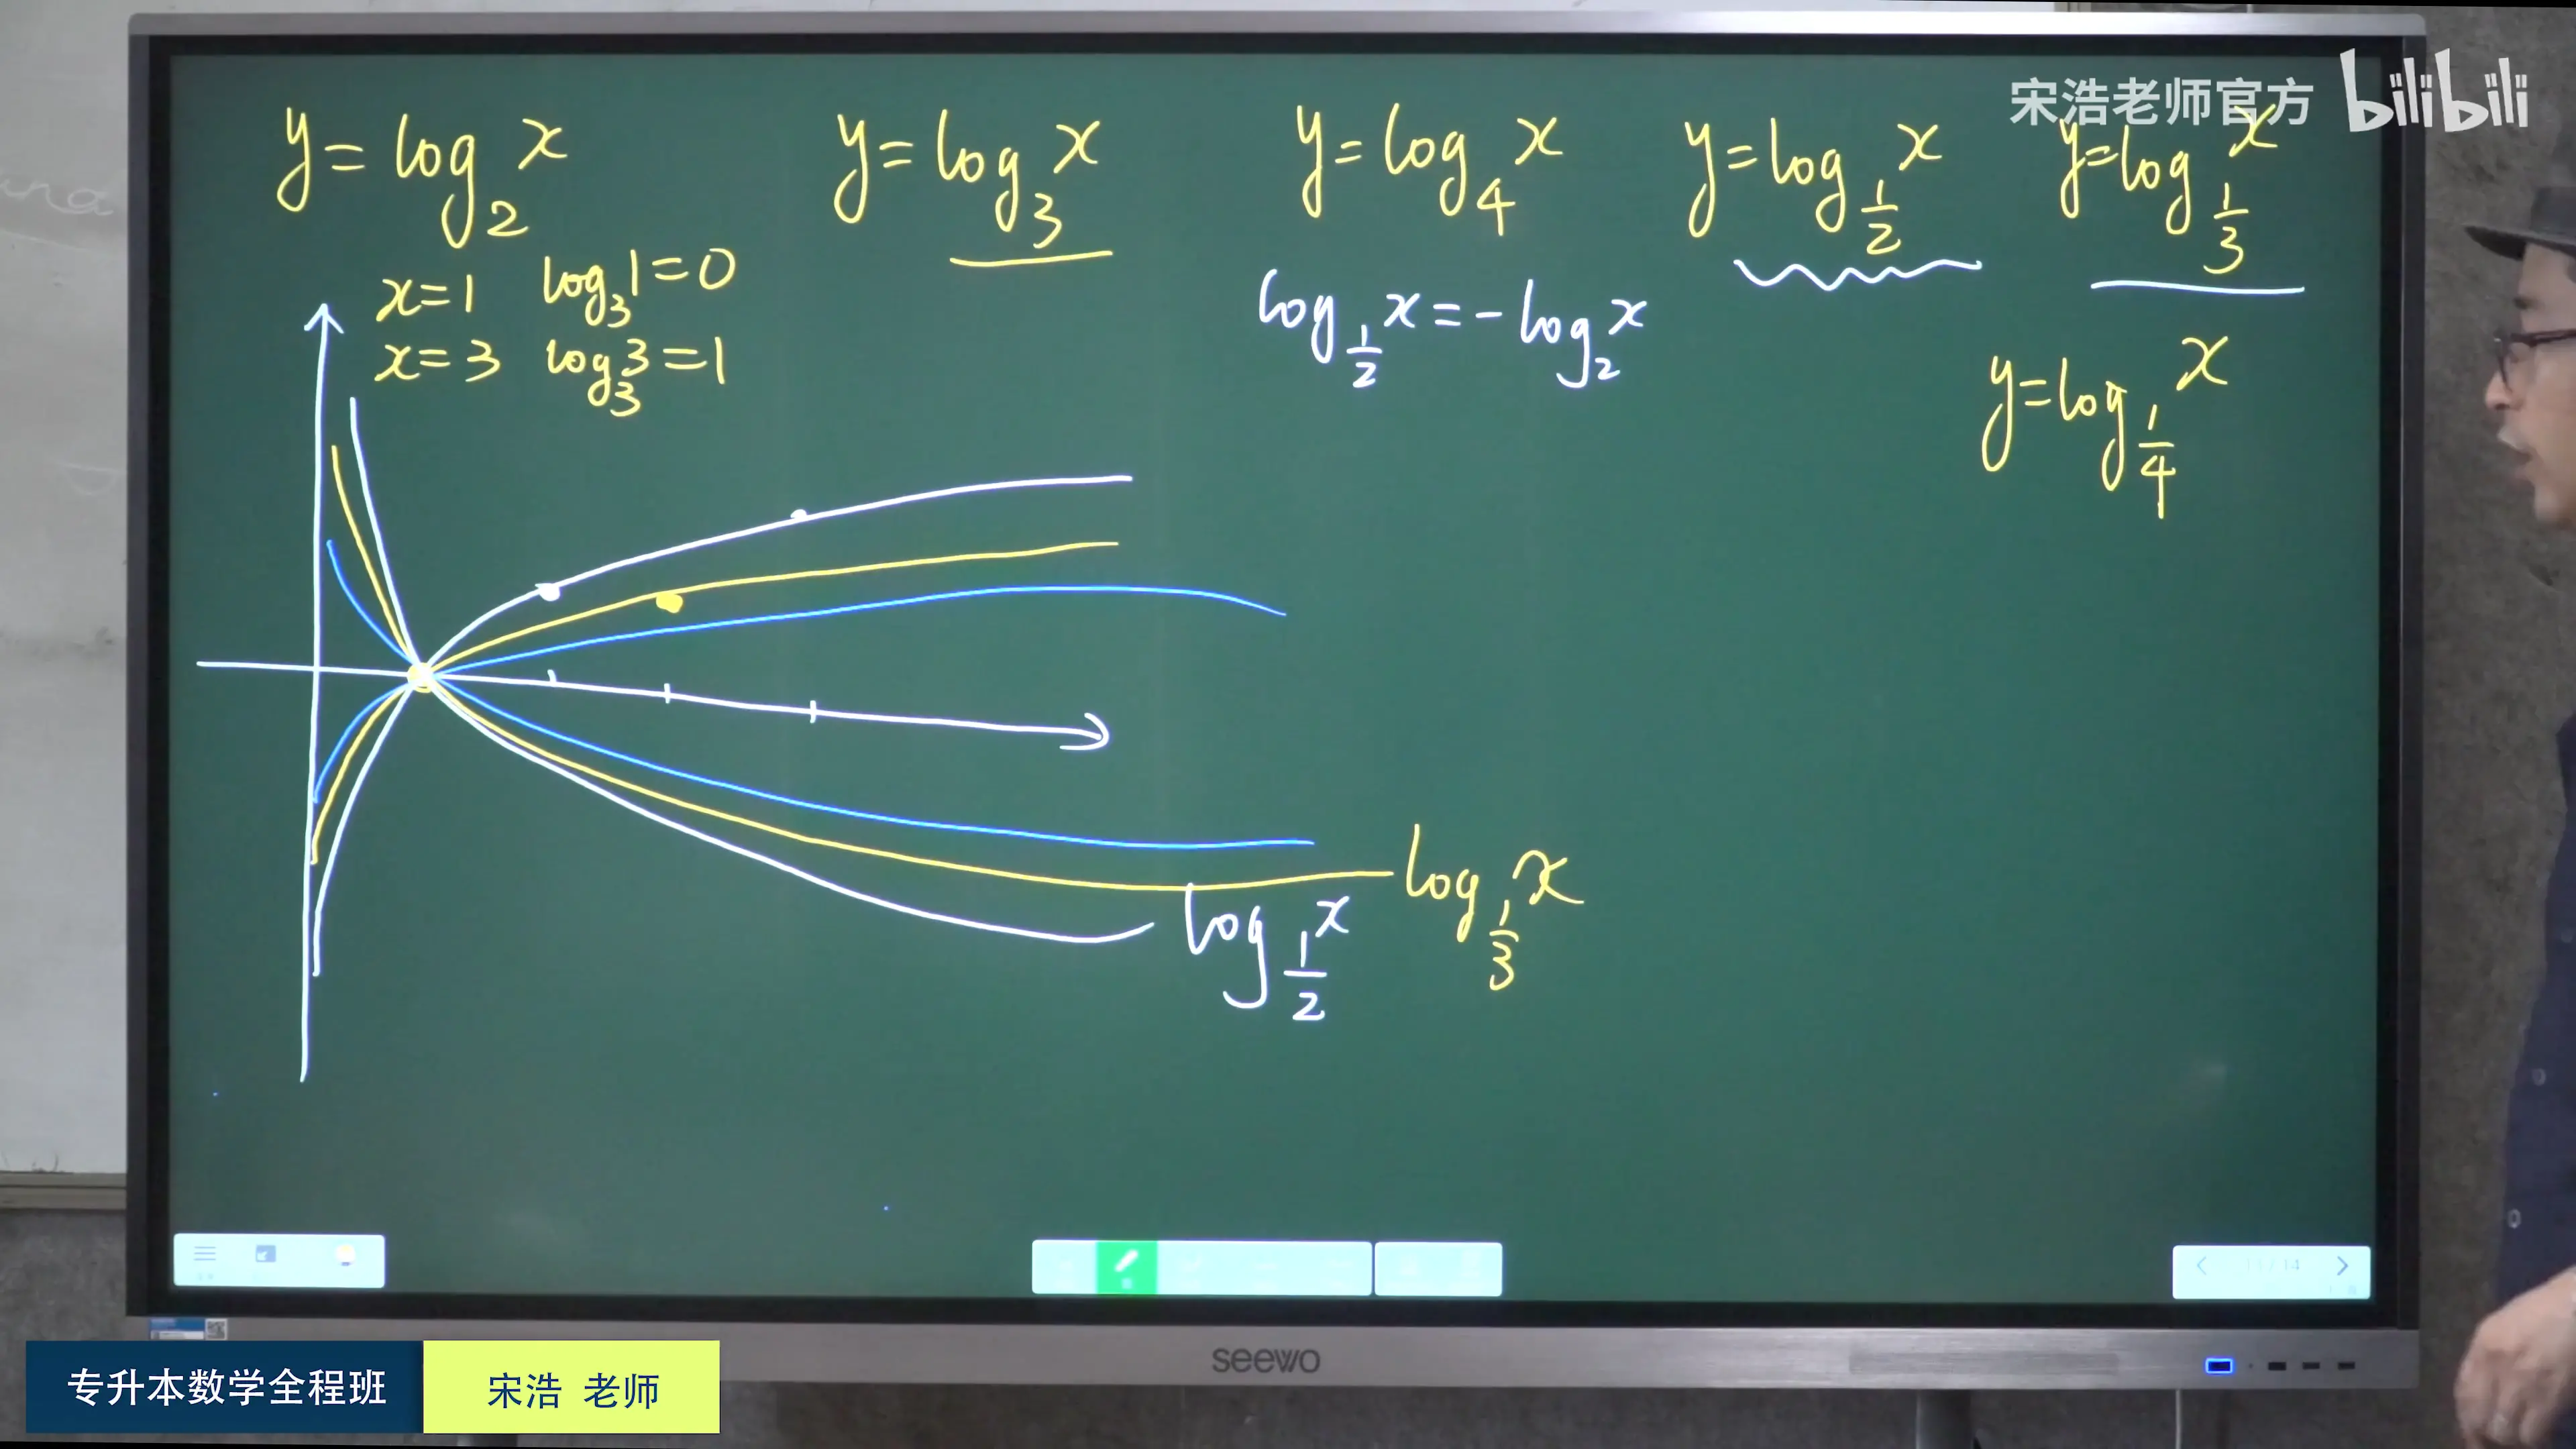 宋浩老师官方 bilibili
y=log₂x y=log₃x y=log₄x y=log_{1/2}x y=log_{1/3}x
x=1 log₃1=0
x=3 log₃3=1
log_{1/2}x=-log₂x
y=log_{1/4}x
log_{1/3}x
log_{1/2}x
seewo
专升本数学全程班 宋浩 老师